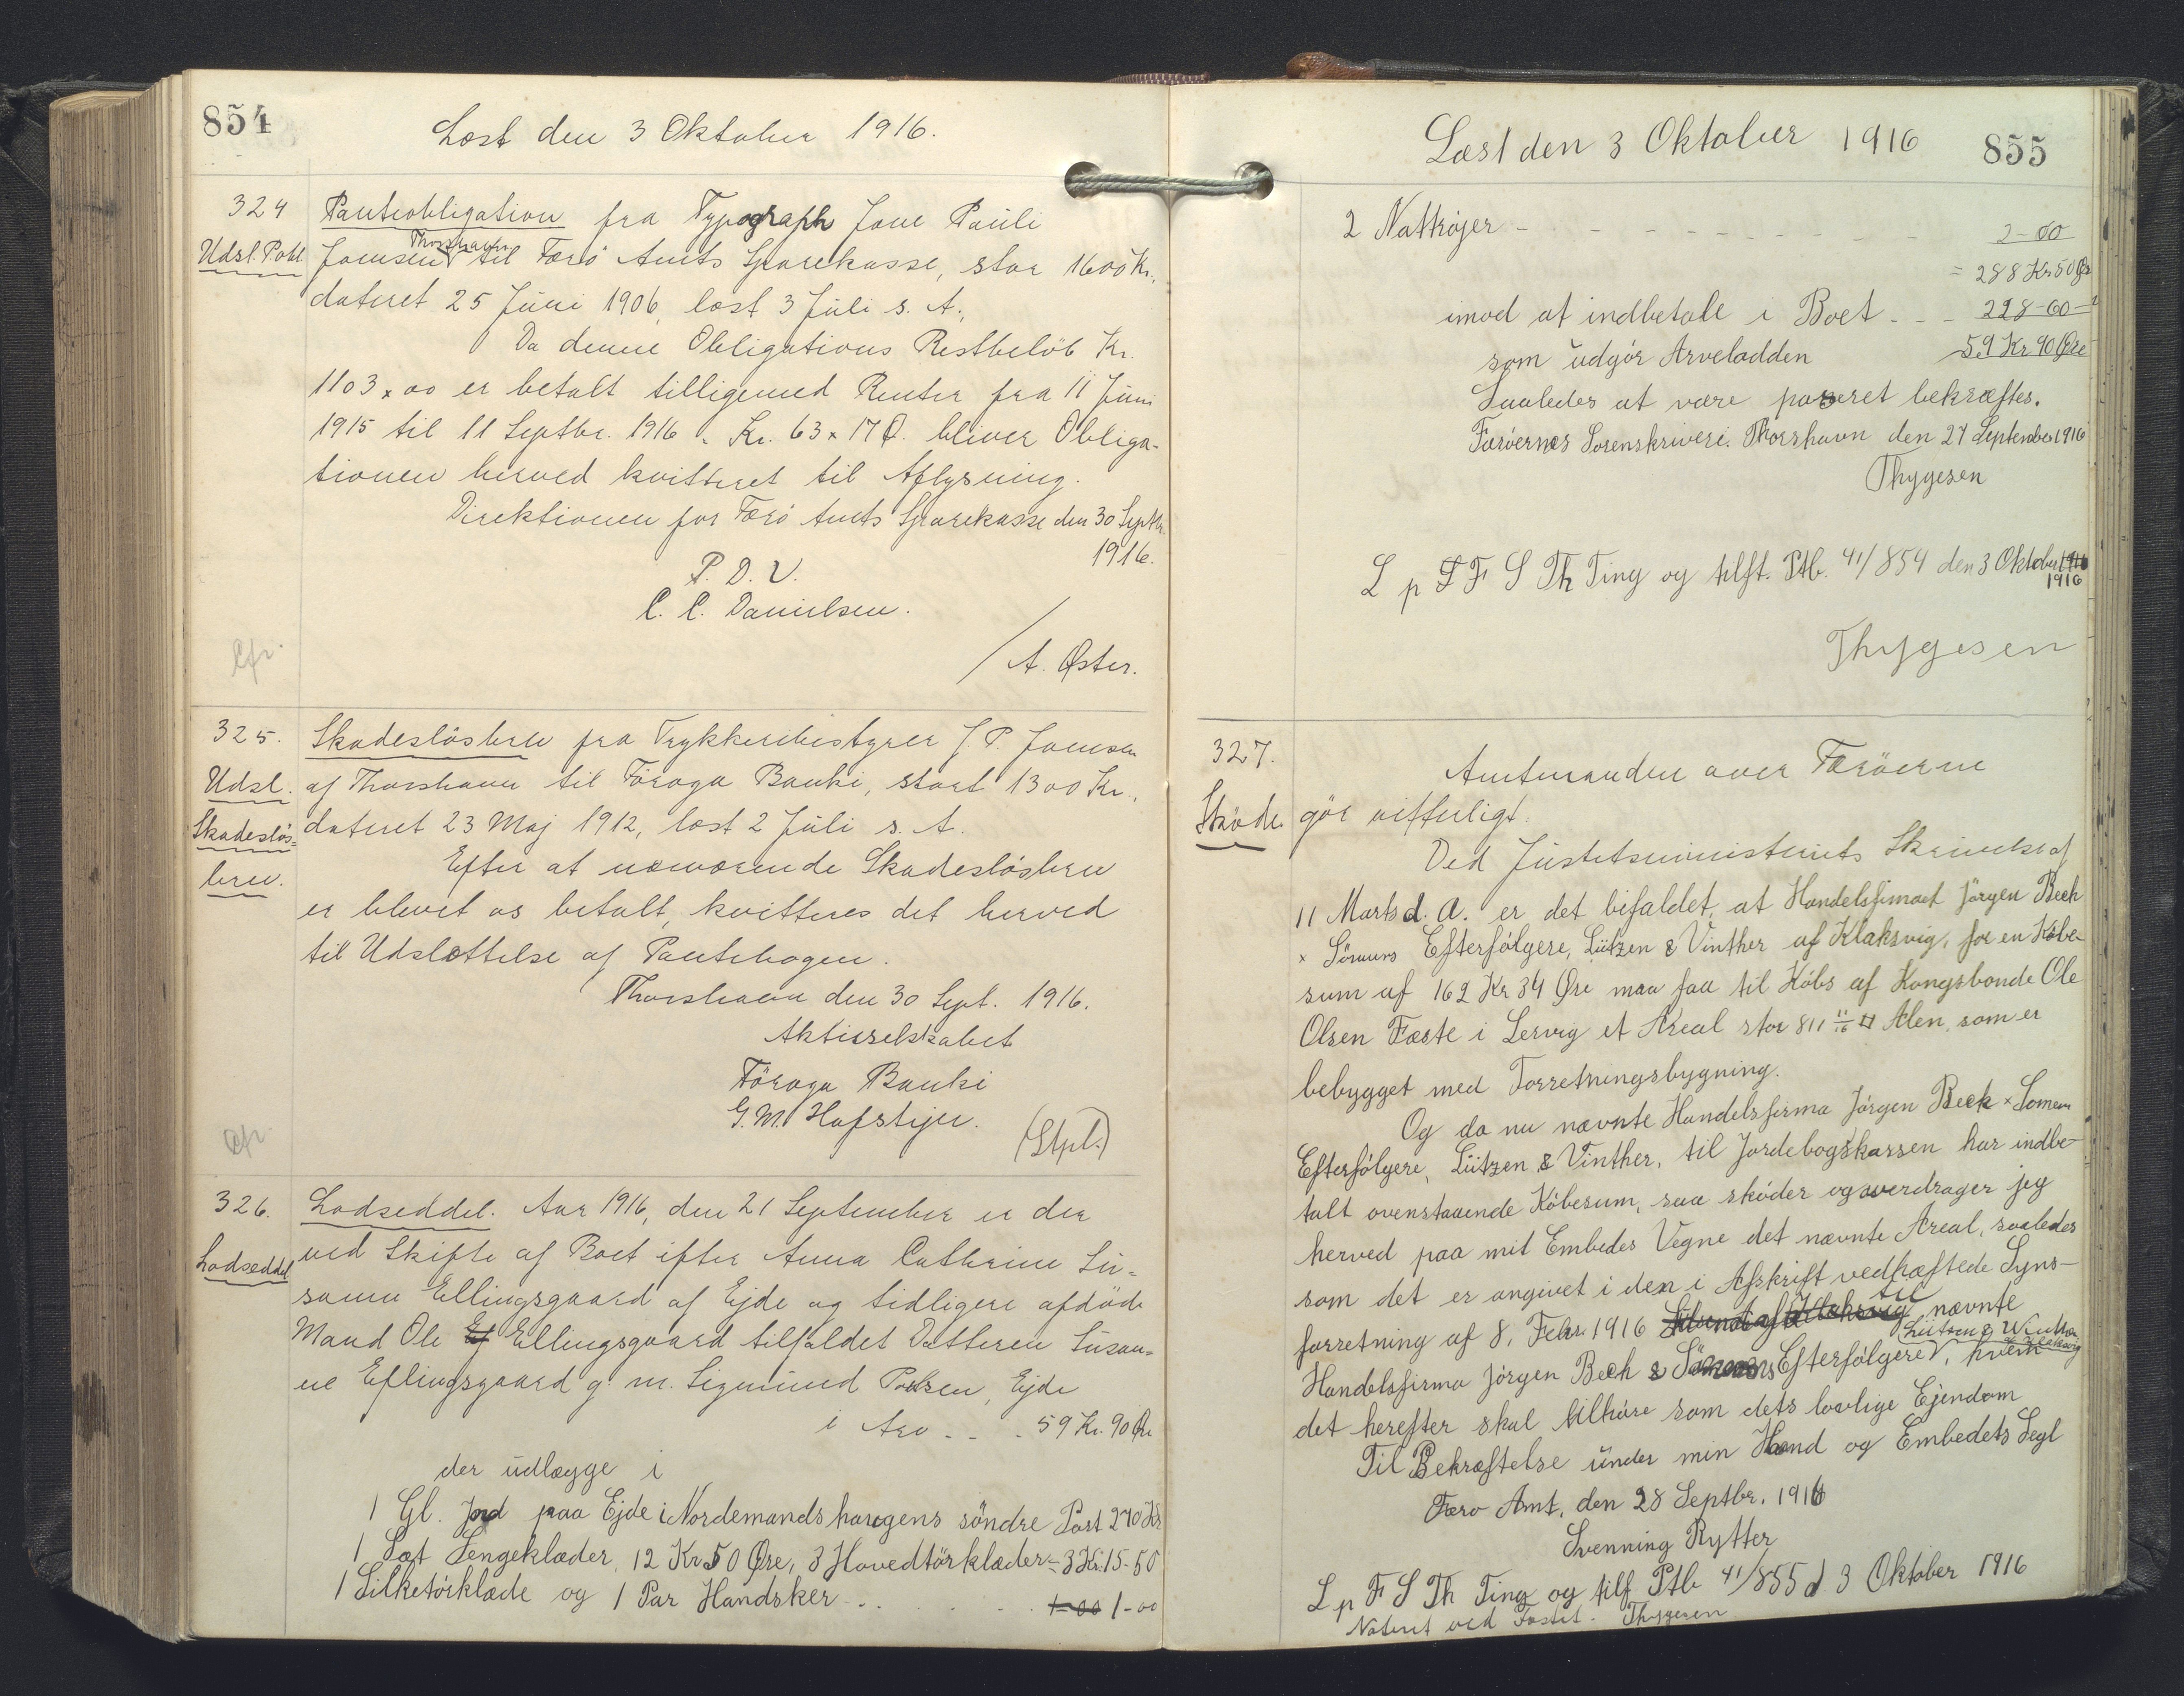 854
Læst den 3 Oktober 1916.
324
Udsl. Pobl
Panteobligation fra Typograph Jone Pauli
Joensen Thorshavn til Færö Amts Sparekasse, stor 1600 Kr.,
dateret 25 Juni 1906, læst 3 Juli s. A.,
Da denne Obligations Restbelöb Kr.
1103 x 00 er betalt tilligemed Renter fra 11 Juni
1915 til 11 Septbr. 1916 - Kr. 63 x 17 Ø. bliver Obliga-
tionen herved kvitteret til Aflysning.
Direktionen for Færö Amts Sparekasse den 30 Septbr.
1916.
P. D. V.
C. C. Danielsen.
/ A. Øster.
Cfr.
325.
Udsl.
Skadeslös=
brev.
Skadeslösbrev fra Trykkeribestyrer J. P. Joensen
af Thorshavn til Föroya Banki, stort 1300 Kr.,
dateret 23 Maj 1912, læst 2 Juli s. A.
Efter at nærværende Skadeslösbrev
er blevet os betalt, kvitteres det herved
til Udslættelse af Pantebogen.
Thorshavn den 30 Sept. 1916.
Aktieselskabet
Föroya Banki
G. M. Hafstijn.
(Stpl.)
Cfr.
326.
Lodseddel
Lodseddel. Aar 1916, den 21 September er der
ved Skifte af Boet efter Anna Cathrine Su-
sanna Ellingsgaard af Ejde og tidligere afdöde
Mand Ole Ellingsgaard tilfaldet Datteren Susan-
ne Ellingsgaard g. m. Sigmund Poulsen, Ejde
i Arv - - - 59 Kr. 90 Øre
der udlægge i
1 Gl. Jord paa Ejde i Nordemandshaugens söndre Part 270 Kr
1 Sæt Sengeklæder, 12 Kr 50 Øre, 3 Hovedtörklæder = 3 Kr. 15-50
1 Silketörklæde og 1 Par Handsker - - 1-00 1-00
Læst den 3 Oktober 1916
855
2 Nattrøjer - - - - - - - - - 2-00
= 288 Kr 50 Øre
imod at indbetale i Boet - - - 228-60-
som udgör Arvelodden 59 Kr 90 Øre
Saaledes at være passeret bekræftes.
Færöernes Sorenskriveri. Thorshavn den 27 September 1916
Thygesen
L p F S Th Ting og tilft. Ptb. 41/854 den 3 Oktober 1916
1916
Thygesen
327.
Sköde.
Amtmanden over Færöerne
gör vitterligt:
Ved Justitsministeriets Skrivelse af
11 Marts d. A. er det bifaldet, at Handelsfirmaet Jörgen Bech
x Sönners Efterfölgere, Lützen & Vinther af Klaksvig, for en Köbe-
sum af 162 Kr 34 Øre maa faa til Köbs af Kongsbonde Ole
Olsen Fæste i Lervig et Areal stor 811 11/16 □ Alen, som er
bebygget med Forretningsbygning.
Og da nu nævnte Handelsfirma Jörgen Beck x Sönners
Efterfölgere, Lützen & Vinther, til Jordebogskassen har indbe-
talt ovenstaaende Köbesum, saa sköder og overdrager jeg
herved paa mit Embedes Vegne det nævnte Areal, saaledes
som det er angivet i den i Afskrift vedhæftede Syns-
forretning af 8. Febr. 1916 til nævnte
Handelsfirma Jörgen Bech & Sönners Efterfölgere Lützen & Winther, Klaksvig, hvem
det herefter skal tilhöre som dets lovlige Ejendom
Til Bekræftelse under min Haand og Embedets Segl
Færo Amt, den 28 Septbr. 1916
Svenning Rytter
L p F S Th Ting og tilf Ptb 41/855 d 3 Oktober 1916
Noteret ved Fæstet. Thygesen